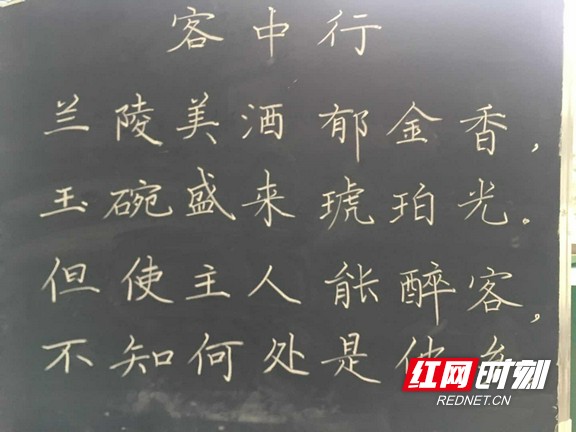 客中行
兰陵美酒郁金香，
玉碗盛来琥珀光。
但使主人能醉客，
不知何处是他乡
红网时刻
REDNET.CN